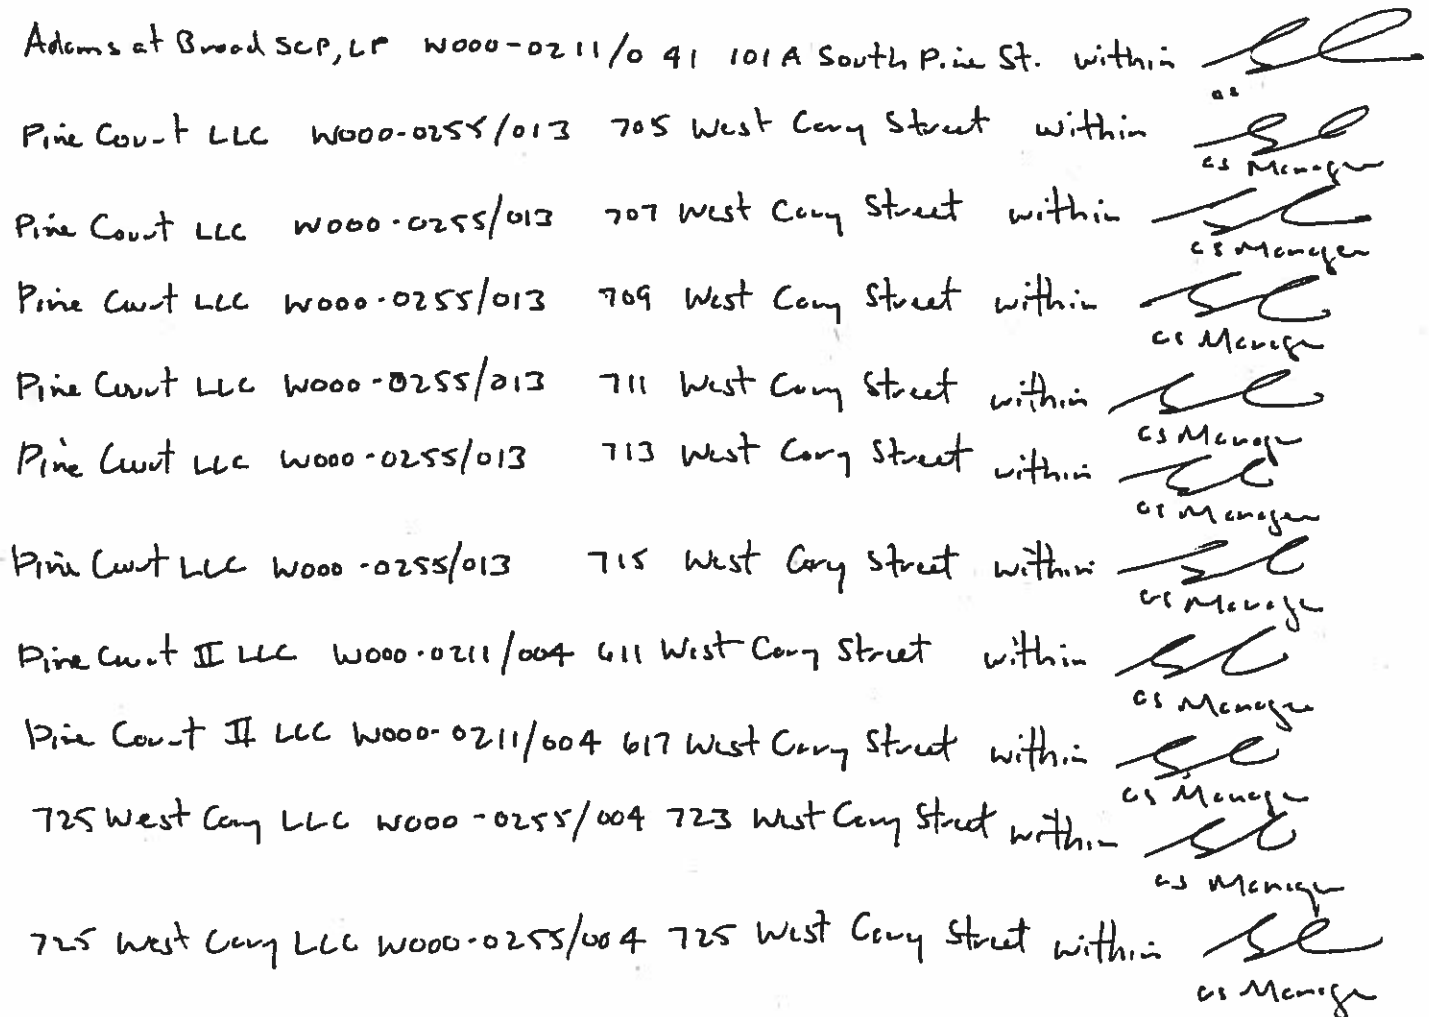 Adams at Broad SCP, LP W000-0211/041 101A South Pine St. within
as
Pine Court LLC W000-0255/013 705 West Cary Street within
as Manager
Pine Court LLC W000-0255/013 707 West Cary Street within
as Manager
Pine Court LLC W000-0255/013 709 West Cary Street within
as Manager
Pine Court LLC W000-0255/013 711 West Cary Street within
as Manager
Pine Court LLC W000-0255/013 713 West Cary Street within
as Manager
Pine Court LLC W000-0255/013 715 West Cary Street within
as Manager
Pine Court II LLC W000-0211/004 611 West Cary Street within
as Manager
Pine Court II LLC W000-0211/004 617 West Cary Street within
as Manager
725 West Cary LLC W000-0255/004 723 West Cary Street within
as Manager
725 West Cary LLC W000-0255/004 725 West Cary Street within
as Manager